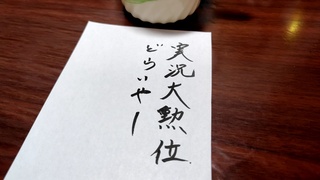 実況大勲位
どらいやー